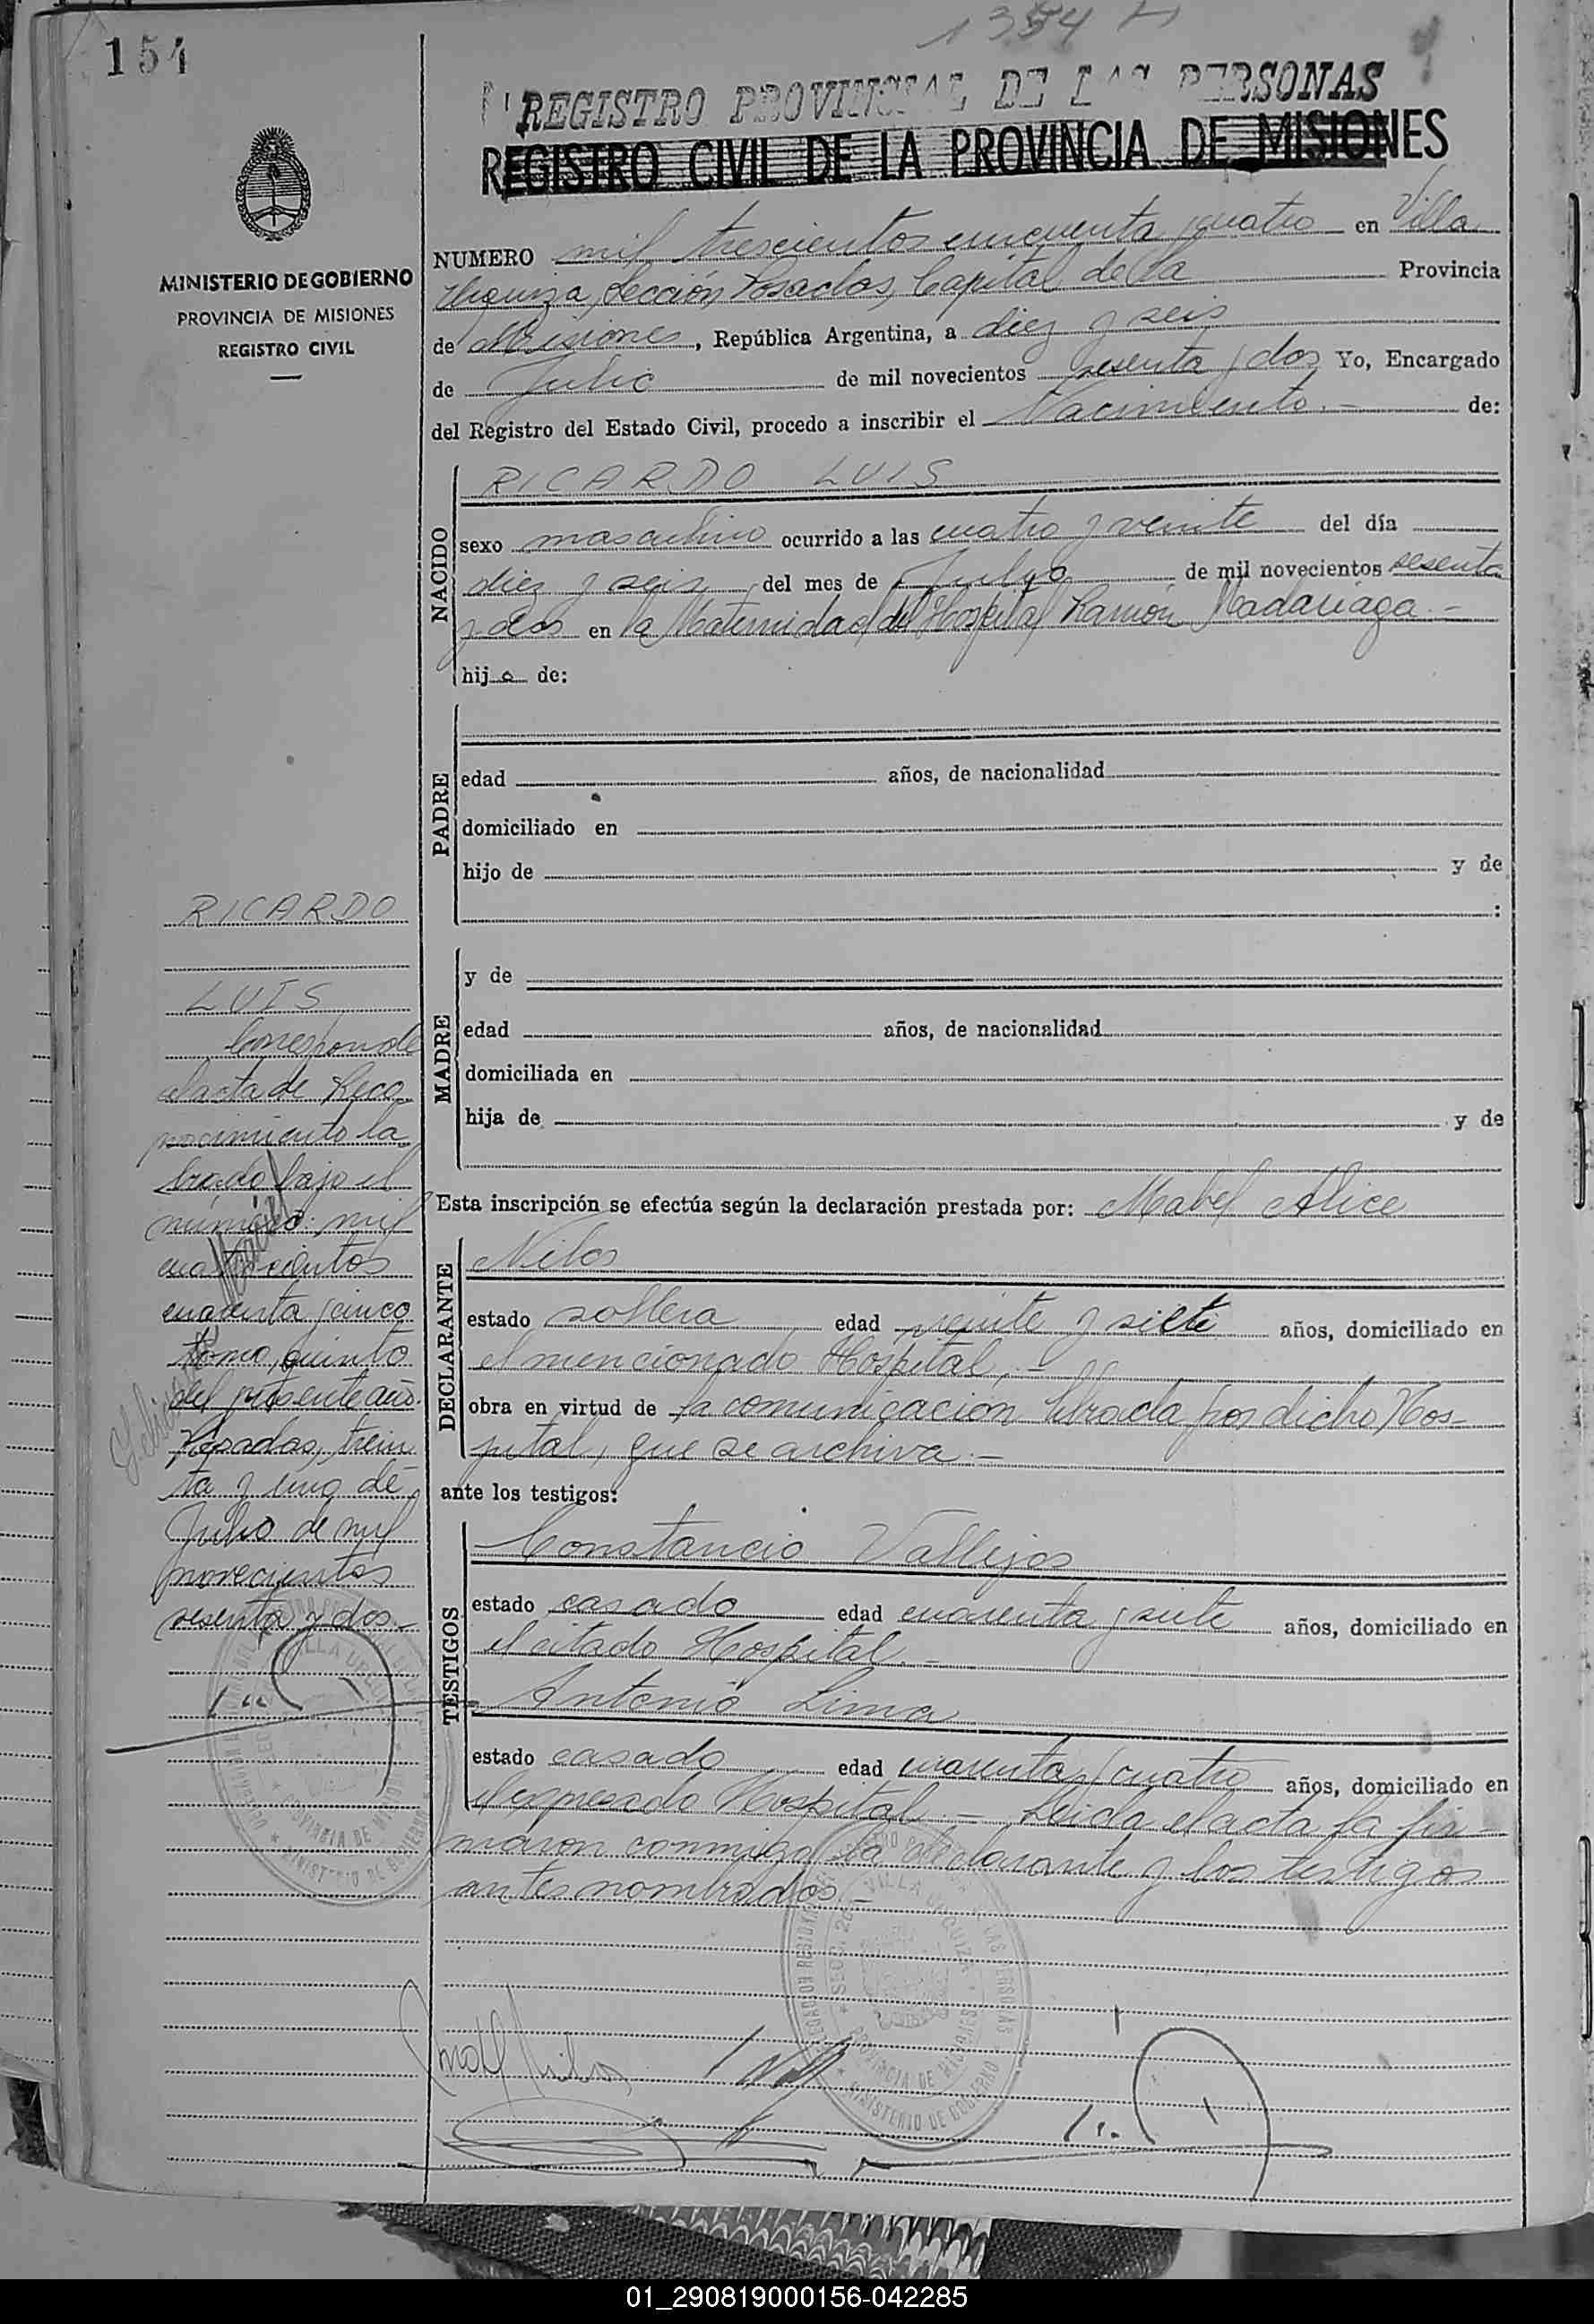 154
1354
REGISTRO PROVINCIAL DE LAS PERSONAS
REGISTRO CIVIL DE LA PROVINCIA DE MISIONES
MINISTERIO DE GOBIERNO
PROVINCIA DE MISIONES
REGISTRO CIVIL
NUMERO mil trescientos cincuenta y cuatro en Villa
Urquiza, Sección, Posadas, Capital de la Provincia
de Misiones, República Argentina, a diez y seis
de Julio de mil novecientos sesenta y dos Yo, Encargado
del Registro del Estado Civil, procedo a inscribir el Nacimiento.- de:
NACIDO
RICARDO LUIS
sexo masculino ocurrido a las cuatro y veinte del día
diez y seis del mes de Julio de mil novecientos sesenta
y dos en la Maternidad del Hospital Ramón Madariaga.-
hijo de:
PADRE
edad años, de nacionalidad
domiciliado en
hijo de y de
:
MADRE
y de
edad años, de nacionalidad
domiciliada en
hija de y de
Esta inscripción se efectúa según la declaración prestada por: Mabel Alice
DECLARANTE
Nilos
estado soltera edad veinte y siete años, domiciliado en
el mencionado Hospital,-
obra en virtud de la comunicación librada por dicho Hos-
pital, que se archiva.-
ante los testigos:
TESTIGOS
Constancio Vallejos
estado casado edad cuarenta y siete años, domiciliado en
el citado Hospital.-
Antonio Lima
estado casado edad cuarenta y cuatro años, domiciliado en
el expresado Hospital.- Leida el acta la fir-
maron conmigo la declarante y los testigos
antes nombrados.-
RICARDO
LUIS
Corresponde
el acta de Reco-
nocimiento la
brado bajo el
número: mil
cuatrocientos
cuarenta y cinco
tomo, quinto
del presente año.
Posadas, trein
ta y uno de
Julio de mil
novecientos
sesenta y dos.-
VILLA URQUIZA
PROVINCIA DE MISIONES
MINISTERIO DE GOBIERNO
VILLA URQUIZA
PROVINCIA DE MISIONES
MINISTERIO DE GOBIERNO
01_290819000156-042285